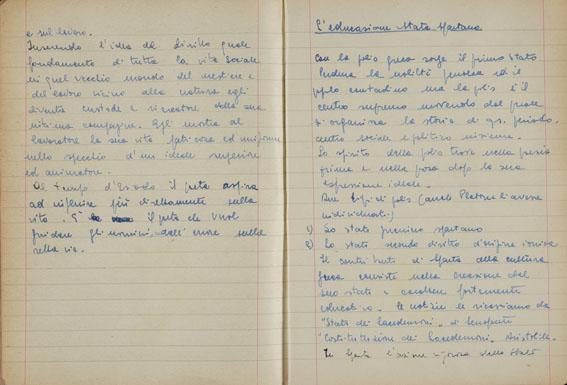 e sul lavoro.
Inserendo l'idea del diritto quale
fondamento di tutta la vita sociale
in quel vecchio mondo del mestiere e
del lavoro vicino alla natura egli
diventa custode e creatore della sua
intima compagine. Egli mostra al
lavoratore la sua vita faticosa ed uniforme
nello specchio d'un ideale superiore
ed animatore.
Al tempo d'Esiodo il poeta aspira
ad influire più direttamente sulla
vita. È il poeta che vuol
guidare gli uomini dall'errore sulla
retta via.
L'educazione Stato Spartano
Con la polis greca sorge il primo Stato
la nobiltà ed il
popolo contadino ma la polis è il
centro supremo movendo dal quale
si organizza la storia di qs. periodo.
centro sociale e politico insieme.
Lo spirito della polis trovò nella poesia
prima e nella prosa dopo la sua
espressione ideale.
Due tipi di polis (anche Platone li aveva
individuati)
1) Lo stato guerriero spartano
2) Lo stato secondo diritto d'origine ionica
Il contributo di Sparta alla cultura
greca consiste nella creazione del
suo stato a carattere fortemente
educativo. Le notizie le ricaviamo da
"Stato dei Lacedemoni" di Senofonte
"Costituzione dei Lacedemoni" Aristotile.
In Sparta l'azione dello Stato